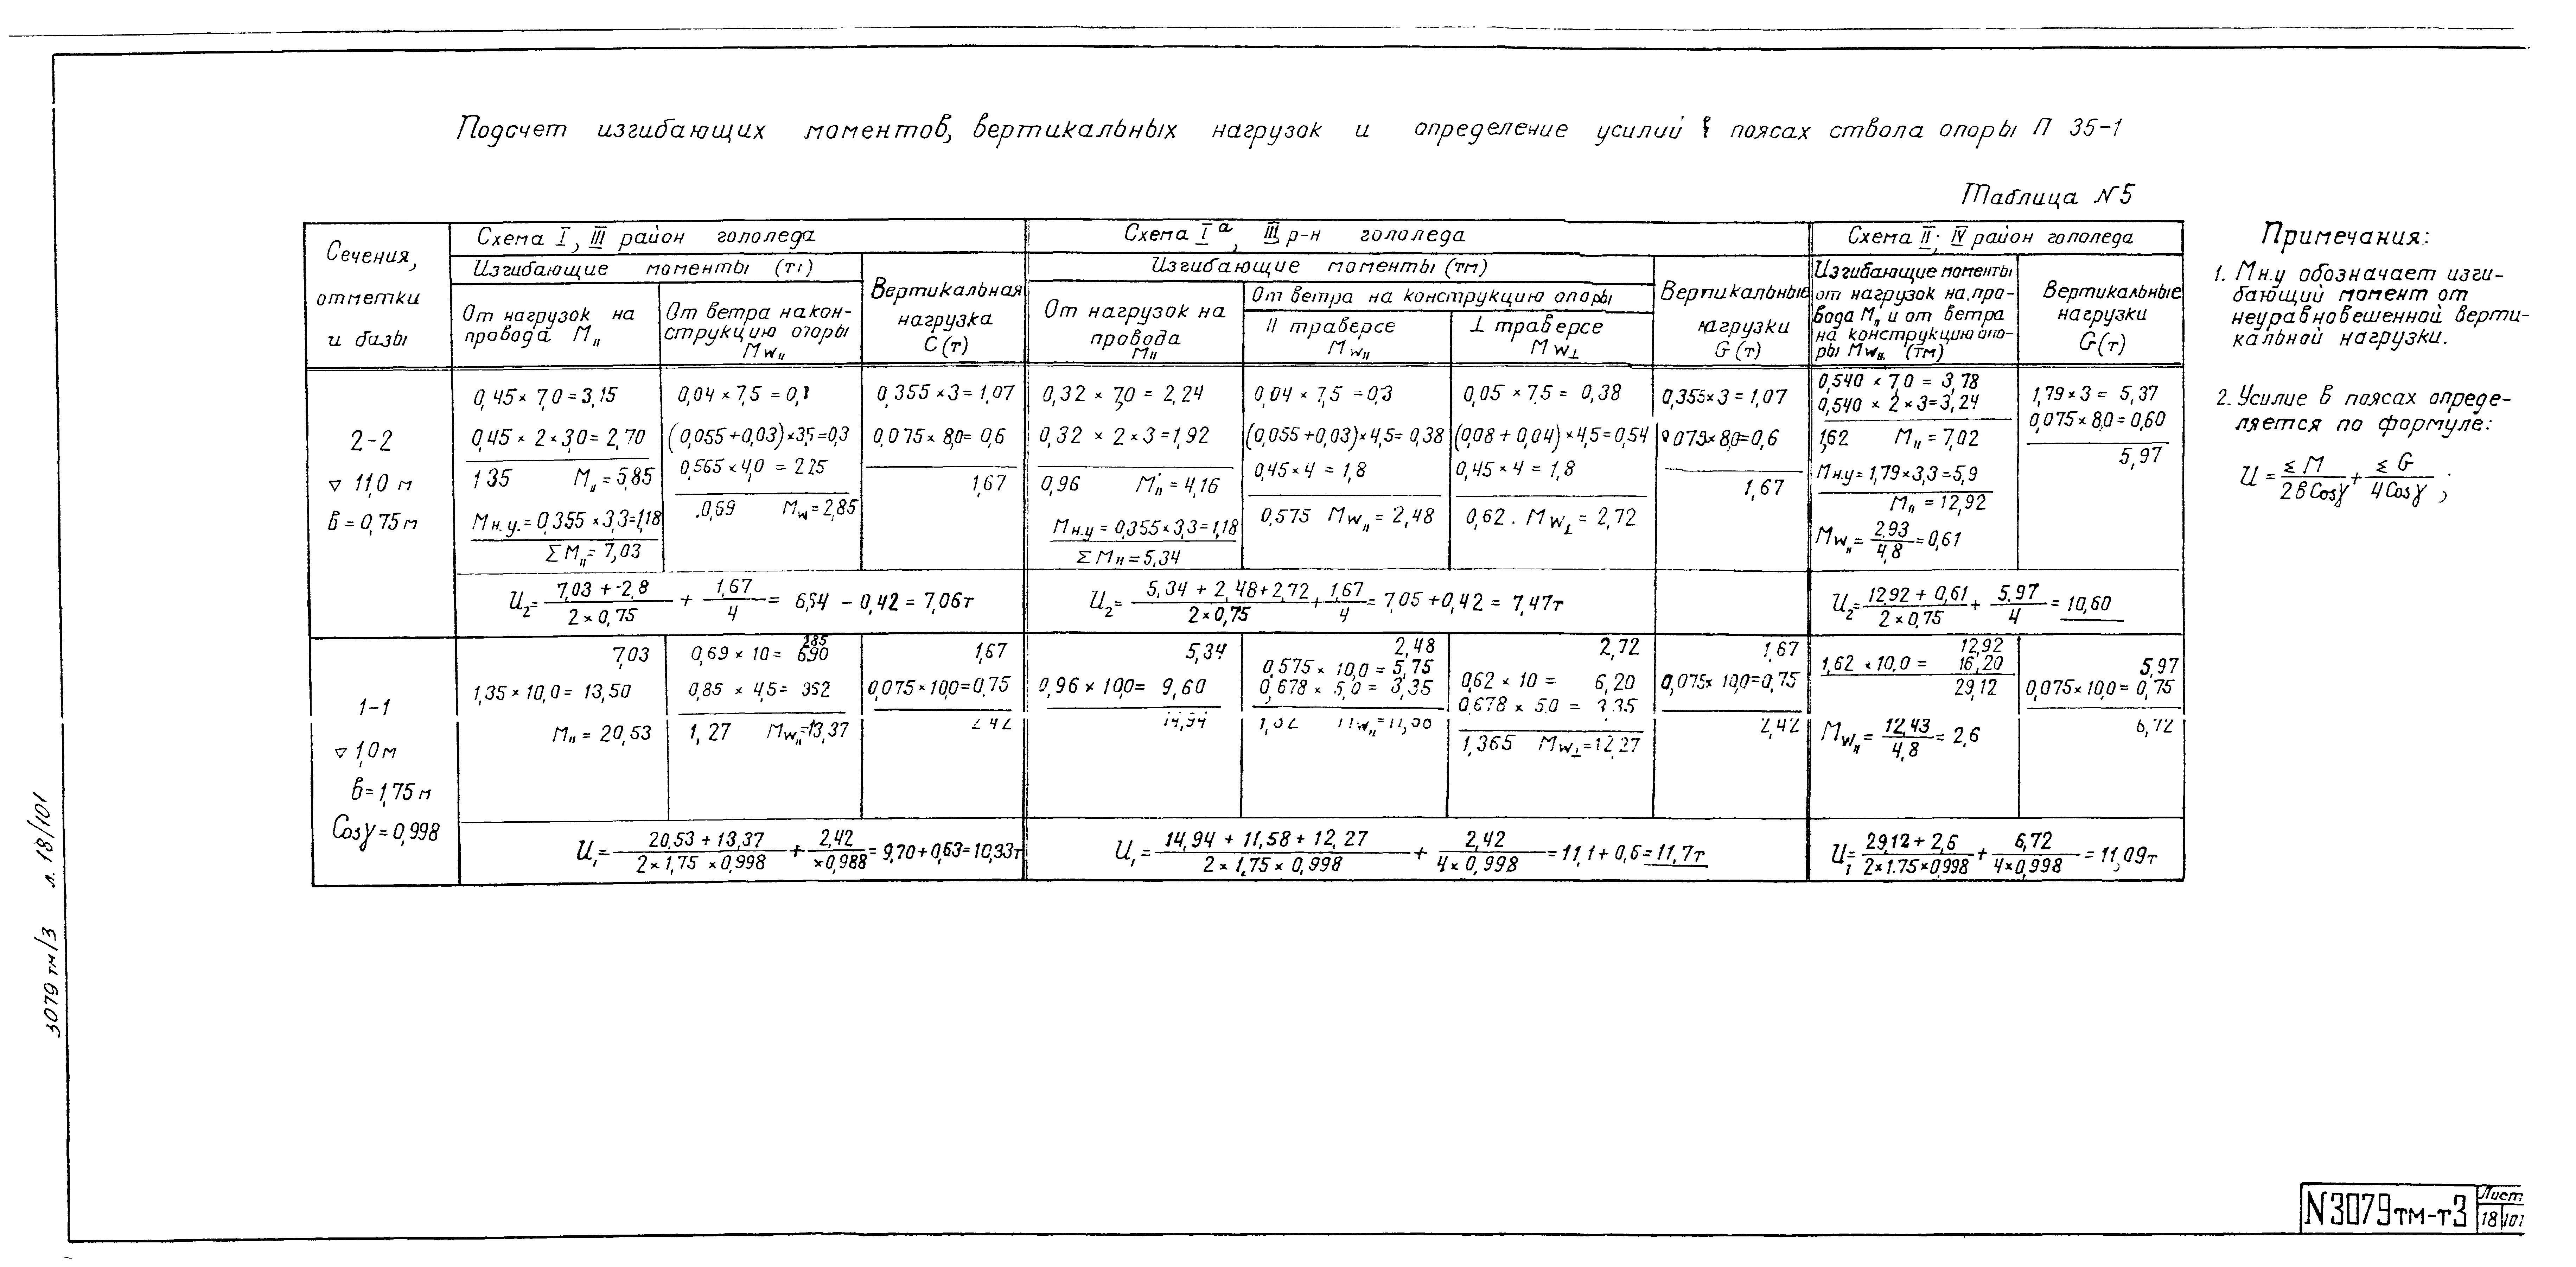 Подсчет изгибающих моментов, вертикальных нагрузок и определение усилий в поясах ствола опоры П 35-1
Таблица N5
Сечения,
отметки
и базы
Схема I, III район гололеда
Изгибающие моменты
От нагрузок на
провода M∥
От ветра на кон-
струкцию опоры
Mw∥
Вертикальная
нагрузка
G(т)
Схема Iª, III р-н гололеда
Изгибающие моменты (тм)
От нагрузок на
провода
M∥
От ветра на конструкцию опоры
∥ траверсе
Mw∥
⊥ траверсе
Mw⊥
Вертикальные
нагрузки
G(т)
Схема II; IV район гололеда
Изгибающие моменты
от нагрузок на про-
вода Mп и от ветра
на конструкцию опо-
ры Mw∥ (тм)
Вертикальные
нагрузки
G(т)
2-2
▽ 11,0 м
в=0,75м
0,45×7,0=3,15
0,45×2×3,0=2,70
1,35 M∥=5,85
Mн.у.=0,355×3,3=1,18
ΣM∥=7,03
0,04×7,5=
(0,055+0,03)×3,5=0,3
0,565×4,0=2,25
0,69 Mw=2,85
0,355×3=1,07
0,075×8,0=0,6
1,67
0,32×7,0=2,24
0,32×2×3=1,92
0,96 Mп=4,16
Mн.у=0,355×3,3=1,18
ΣM∥=5,34
0,04×7,5=0,3
(0,055+0,03)×4,5=0,38
0,45×4=1,8
0,575 Mw∥=2,48
0,05×7,5=0,38
(0,08+0,04)×4,5=0,54
0,45×4=1,8
0,62. Mw⊥=2,72
0,355×3=1,07
0,075×8,0=0,6
1,67
0,540×7,0=3,78
0,540×2×3=3,24
1,62 M∥=7,02
Mн.у=1,79×3,3=5,9
M∥=12,92
Mw∥=2,93/4,8=0,61
1,79×3=5,37
0,075×8,0=0,60
5,97
U₂=(7,03+2,8)/(2×0,75)+1,67/4=6,64-0,42=7,06т
U₂=(5,34+2,48+2,72)/(2×0,75)+1,67/4=7,05+0,42=7,47т
U₂=(12,92+0,61)/(2×0,75)+5,97/4=10,60
1-1
▽ 1,0м
в=1,75м
Cosγ=0,998
7,03
1,35×10,0=13,50
M∥=20,53
2,85
0,69×10=6,90
0,85×4,5=3,62
1,27 Mw∥=13,37
1,67
0,075×10,0=0,75
2,42
5,34
0,96×10,0=9,60
14,94
2,48
0,575×10,0=5,75
0,678×5,0=3,35
2,72
0,62×10=6,20
0,678×5,0=3,35
1,365 Mw⊥=12,27
1,67
0,075×10,0=0,75
2,42
12,92
1,62×10,0=16,20
29,12
Mw∥=12,43/4,8=2,6
5,97
0,075×10,0=0,75
6,72
U₁=(20,53+13,37)/(2×1,75×0,998)+2,42/(×0,988)=9,70+0,63=10,33т
U₁=(14,94+11,58+12,27)/(2×1,75×0,998)+2,42/(4×0,998)=11,1+0,6=11,7т
U₁=(29,12+2,6)/(2×1,75×0,998)+6,72/(4×0,998)=11,09т
Примечания:
1. Mн.у обозначает изги-
бающий момент от
неуравновешенной верти-
кальной нагрузки.
2. Усилие в поясах опреде-
ляется по формуле:
U=ΣM/(2в Cosγ)+ΣG/(4Cosγ);
3079тм/3 л. 18/101
N3079тм-т3
Лист
18 101